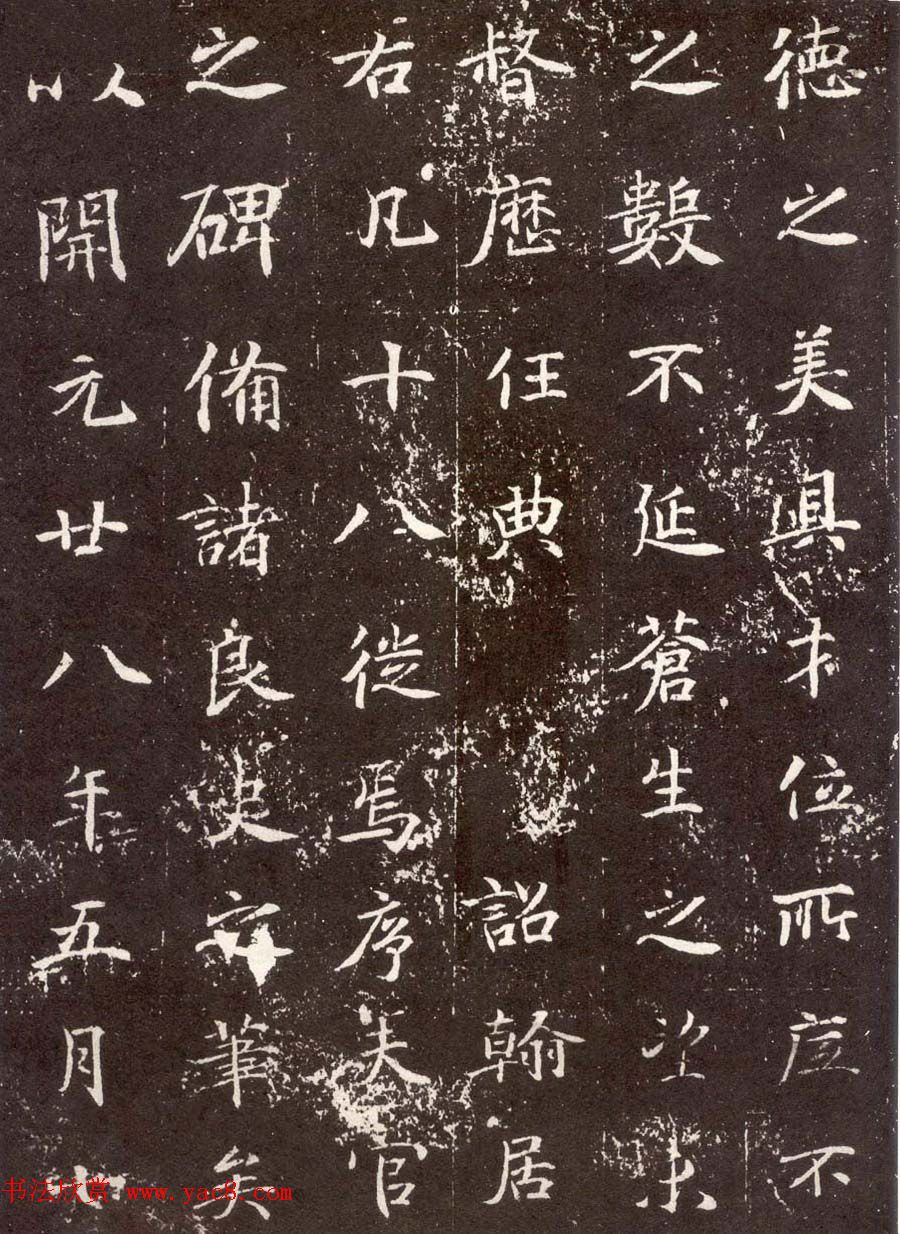 德之美與才位所不
之數不延蒼生之望未
督歷任典 詔翰居
右凡十八徙焉序夫官
之碑備諸良史筆矣
以開元廿八年五月
书法欣赏 www.yac8.com